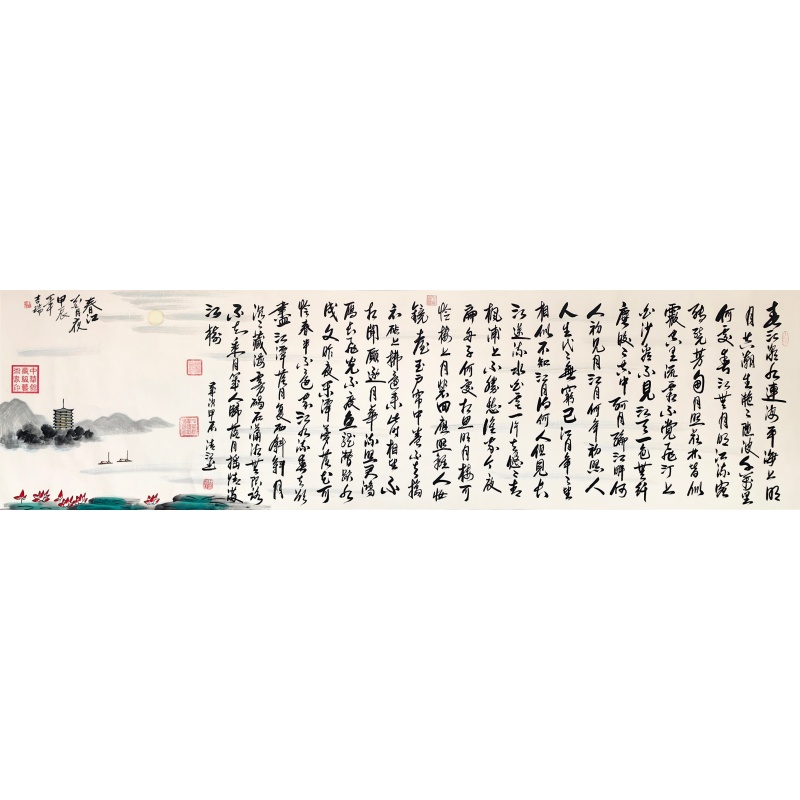 春江潮水連海平海上明
月共潮生灩々隨波千萬里
何處春江無月明江流宛
轉繞芳甸月照花林皆似
霰空里流霜不覺飛汀上
白沙看不見江天一色無纖
塵皎々空中孤月輪江畔何
人初見月江月何年初照人
人生代々無窮已江月年々望
相似不知江月待何人但見長
江送流水白雲一片去悠々青
楓浦上不勝愁誰家今夜
扁舟子何處相思明月樓可
憐樓上月裴回應照離人妝
鏡臺玉戶簾中卷不去搗
衣砧上拂還來此時相望不
相聞願逐月華流照君鴻
雁長飛光不度魚龍潛躍水
成文昨夜閑潭夢落花可
憐春半不還家江水流春去欲
盡江潭落月復西斜斜月
沉々藏海霧碣石瀟湘無限路
不知乘月幾人歸落月搖情滿
江樹
春江
花月夜
甲辰